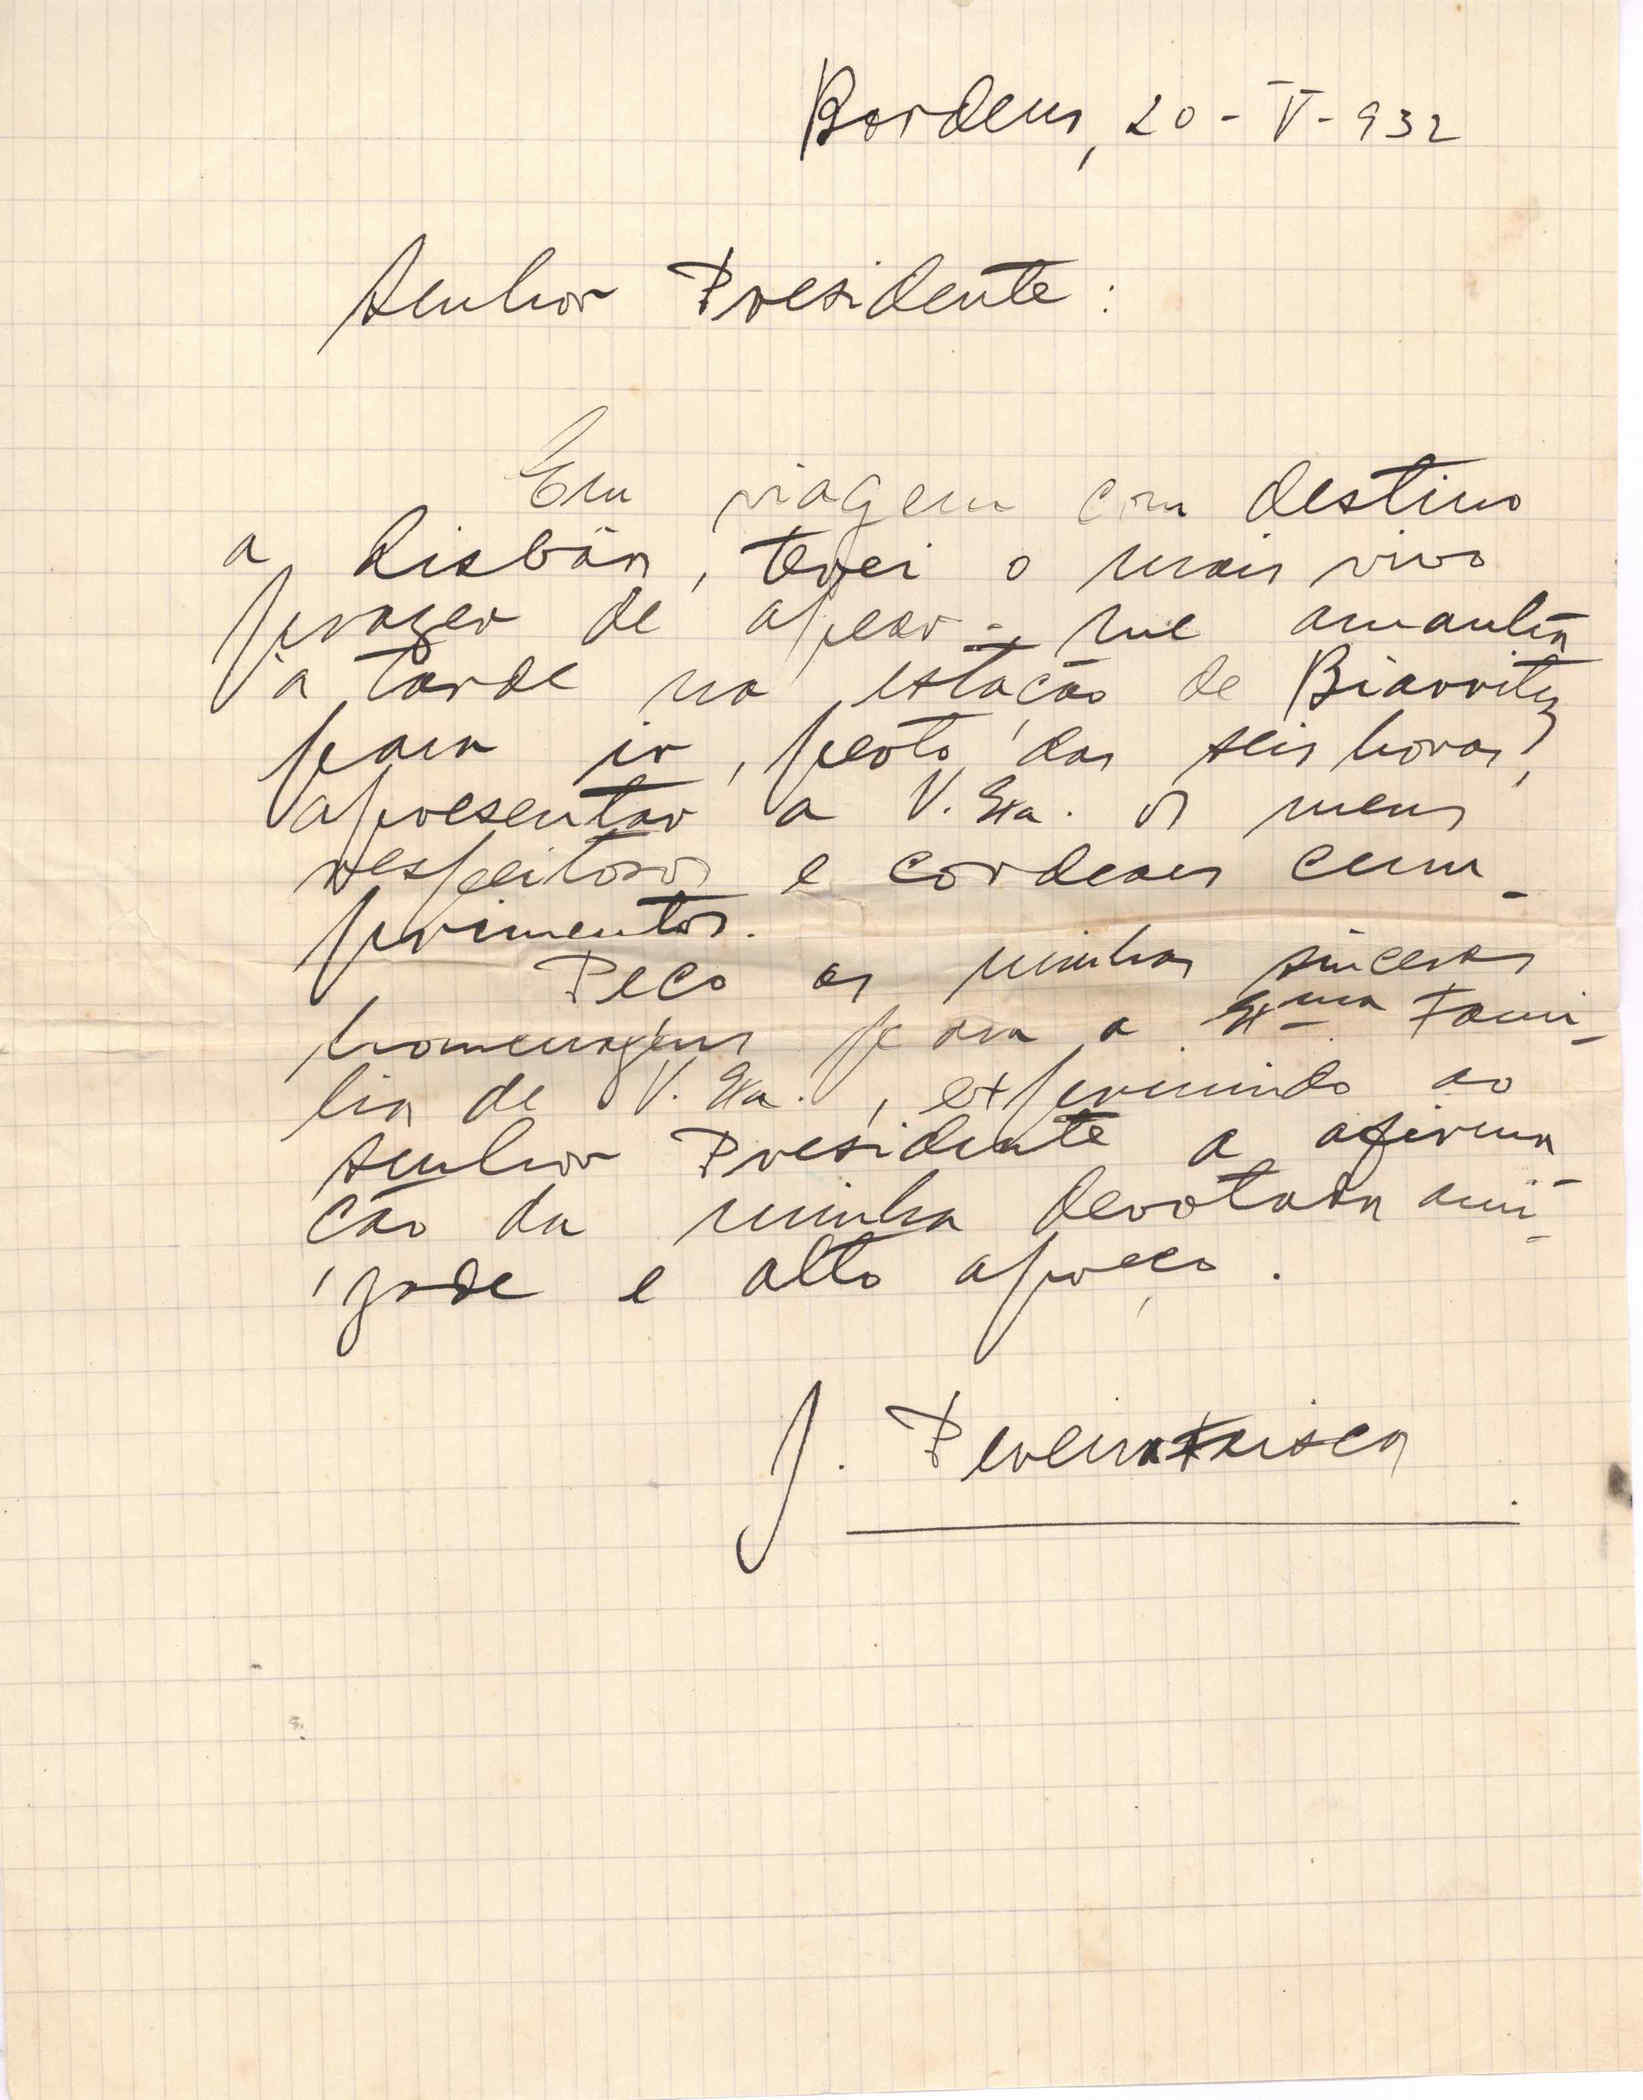 Bordeus, 20-V-932
Senhor Presidente:
Em viagem com destino
a Lisbôa, terei o mais vivo
prazer de apear-me amanhã
à tarde na estação de Biarritz
para ir, perto das seis horas,
apresentar a V. Exa. os meus
respeitosos e cordeaes cum-
primentos.
Peço as minhas sinceras
homenagens para a Exma Fami-
lia de V. Exa., exprimindo ao
Senhor Presidente a afirma
ção da minha devotada ami-
zade e alto apreço.
J. Pereira